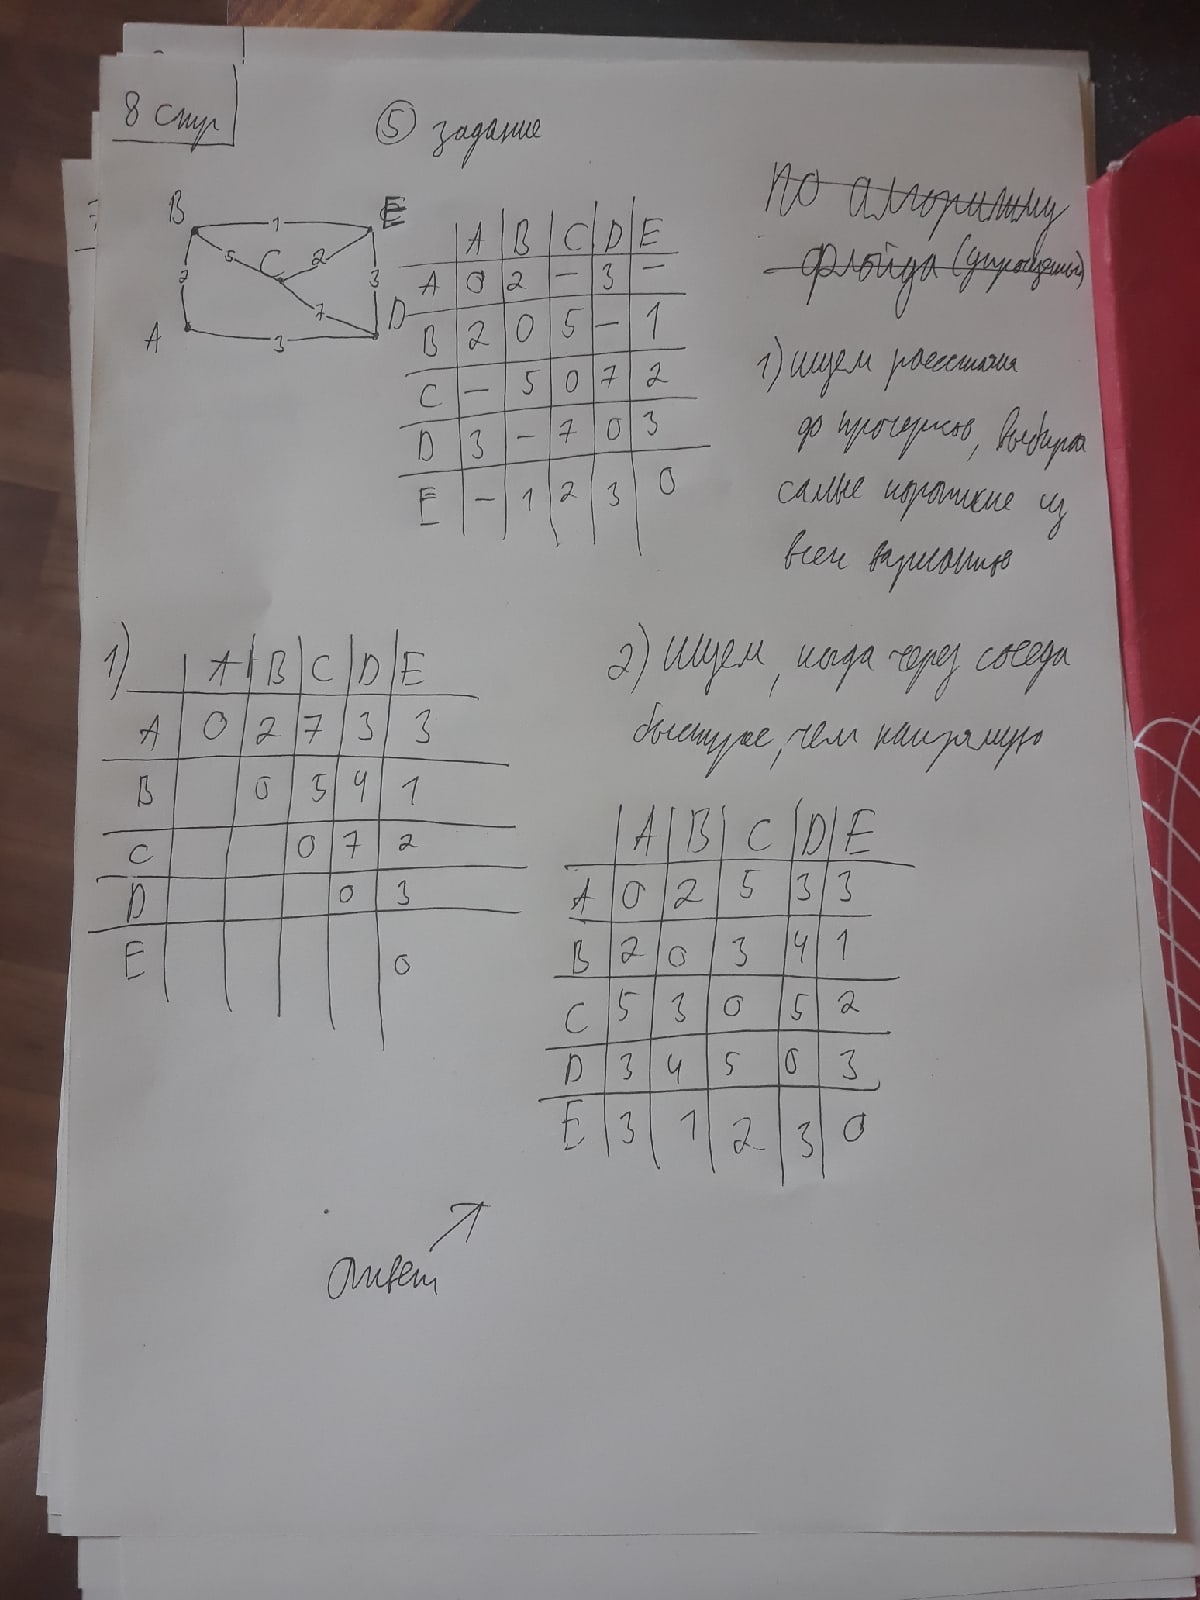 8 стр
⑤ задание
B 1 E
5 C 2
2 3
7 D
A 3
A B C D E
A 0 2 – 3 –
B 2 0 5 – 1
C – 5 0 7 2
D 3 – 7 0 3
E – 1 2 3 0
по алгоритму
флойда (упрощенный)
1) ищем расстояния
до прочерков, выбирая
самые короткие из
всех вариантов
1)
A B C D E
A 0 2 7 3 3
B 0 3 4 1
C 0 7 2
D 0 3
E 0
2) ищем, когда через соседа
быстрее, чем напрямую
A B C D E
A 0 2 5 3 3
B 2 0 3 4 1
C 5 3 0 5 2
D 3 4 5 0 3
E 3 1 2 3 0
Ответ